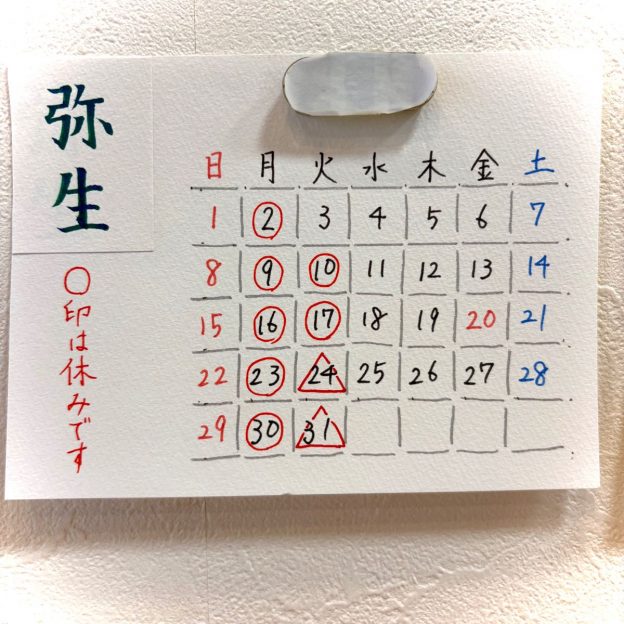 弥生
○印は休みです
日 月 火 水 木 金 土
1 2 3 4 5 6 7
8 9 10 11 12 13 14
15 16 17 18 19 20 21
22 23 24 25 26 27 28
29 30 31